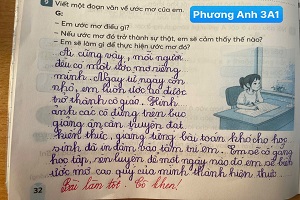 Phương Anh 3A1
9 Viết một đoạn văn về ước mơ của em.
G:
– Em ước mơ điều gì?
– Nếu ước mơ đó trở thành sự thật, em sẽ cảm thấy thế nào?
– Em sẽ làm gì để thực hiện ước mơ đó?
Ai cũng vậy, mỗi người
đều có một ước mơ riêng
mình. Ngay từ ngày còn
nhỏ, em luôn ước ao được
trở thành cô giáo. Hình
ảnh các cô đứng trên bục
giảng ân cần truyền đạt
kiến thức, giảng từng bài toán khó cho học
sinh đã in đậm vào tâm trí em. Em sẽ cố gắng
học tập, rèn luyện để một ngày nào đó em sẽ biến
ước mơ cao quý của mình thành hiện thực.
32
Bài làm tốt. Cô khen!